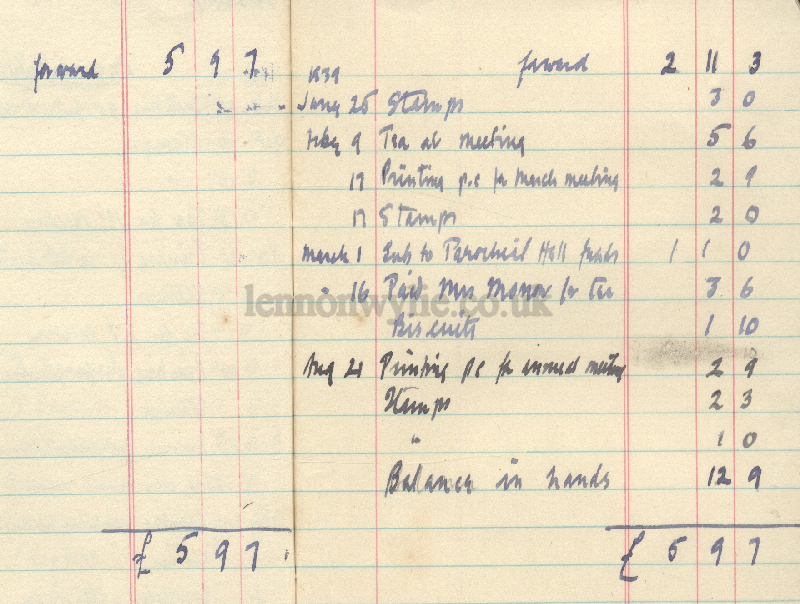 forward 5 9 7
1939 forward 2 11 3
Jany 25 Stamps 3 0
Feby 9 Tea at meeting 5 6
17 Printing p.c for March meeting 2 9
17 Stamps 2 0
March 1 Sub to Parochial Hall funds 1 1 0
" 16 Paid Mrs for tea 3 6
Biscuits 1 10
Aug 21 Printing p.c for annual meeting 2 9
Stamps 2 3
" 1 0
Balance in hands 12 9
£ 5 9 7
£ 5 9 7
lennonwylie.co.uk